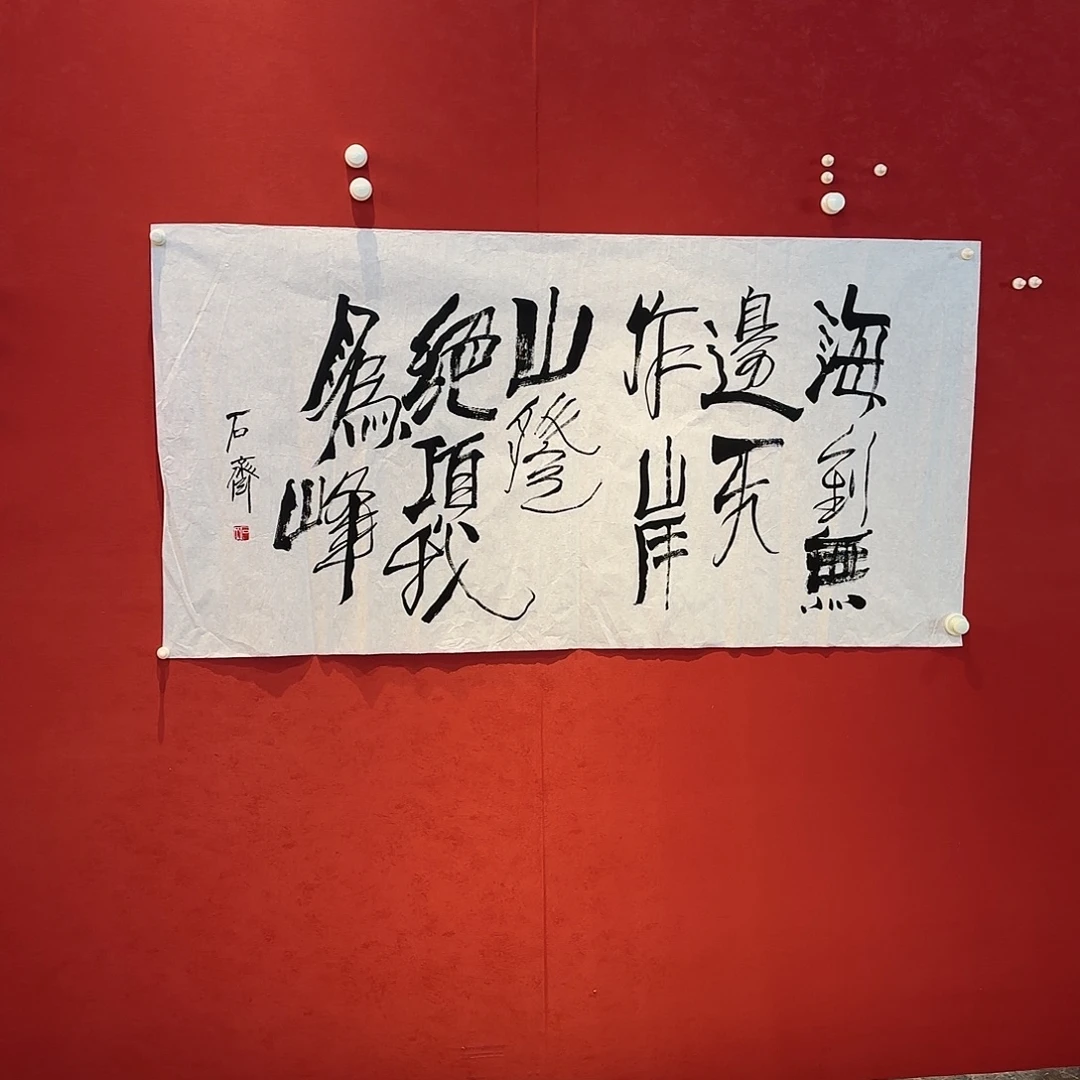 海到無
邊天
作岸
山登
絕頂我
為峰
石齊